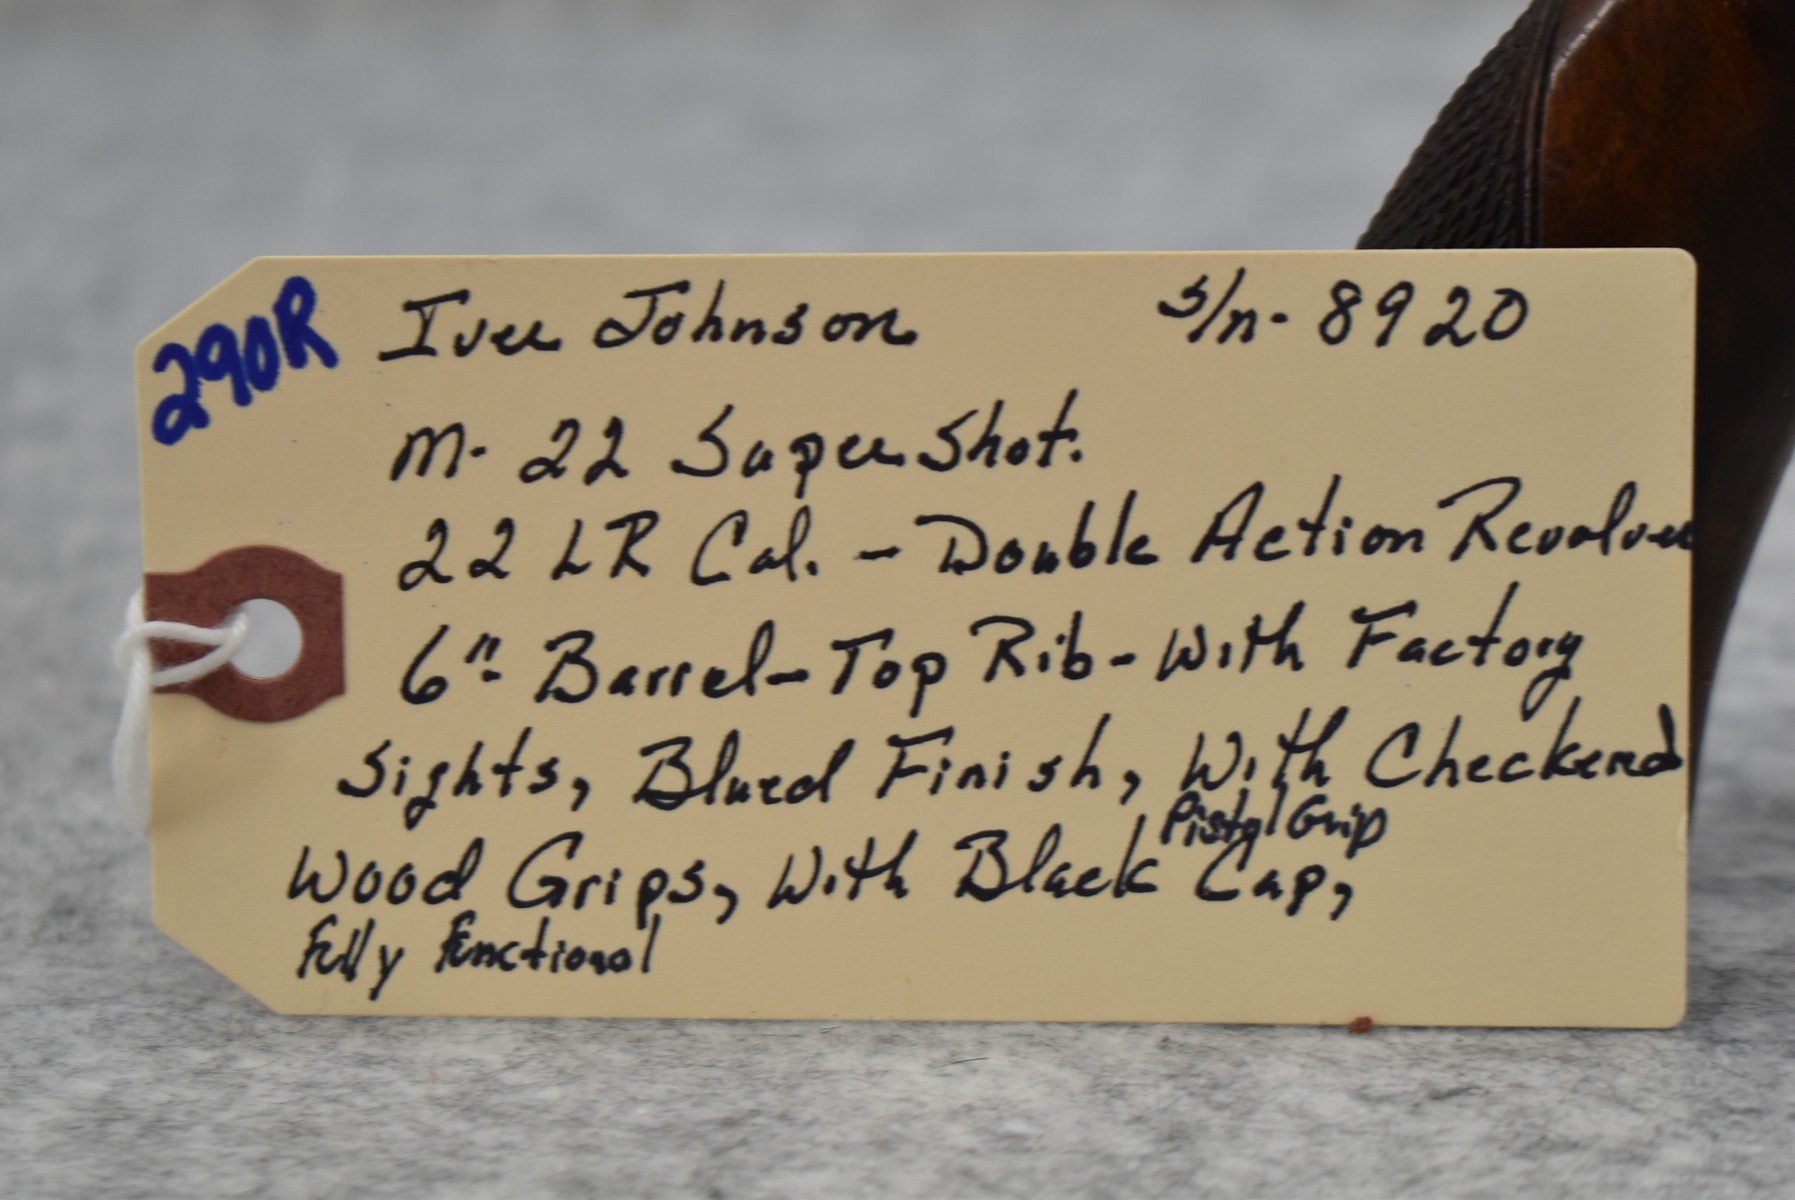 290R
Iver Johnson s/n- 8920
M- 22 Super Shot.
22 LR Cal. - Double Action Revolver
6" Barrel - Top Rib - With Factory
Sights, Blued Finish, With Checkered
Pistol Grip
Wood Grips, With Black Cap,
Fully Functional